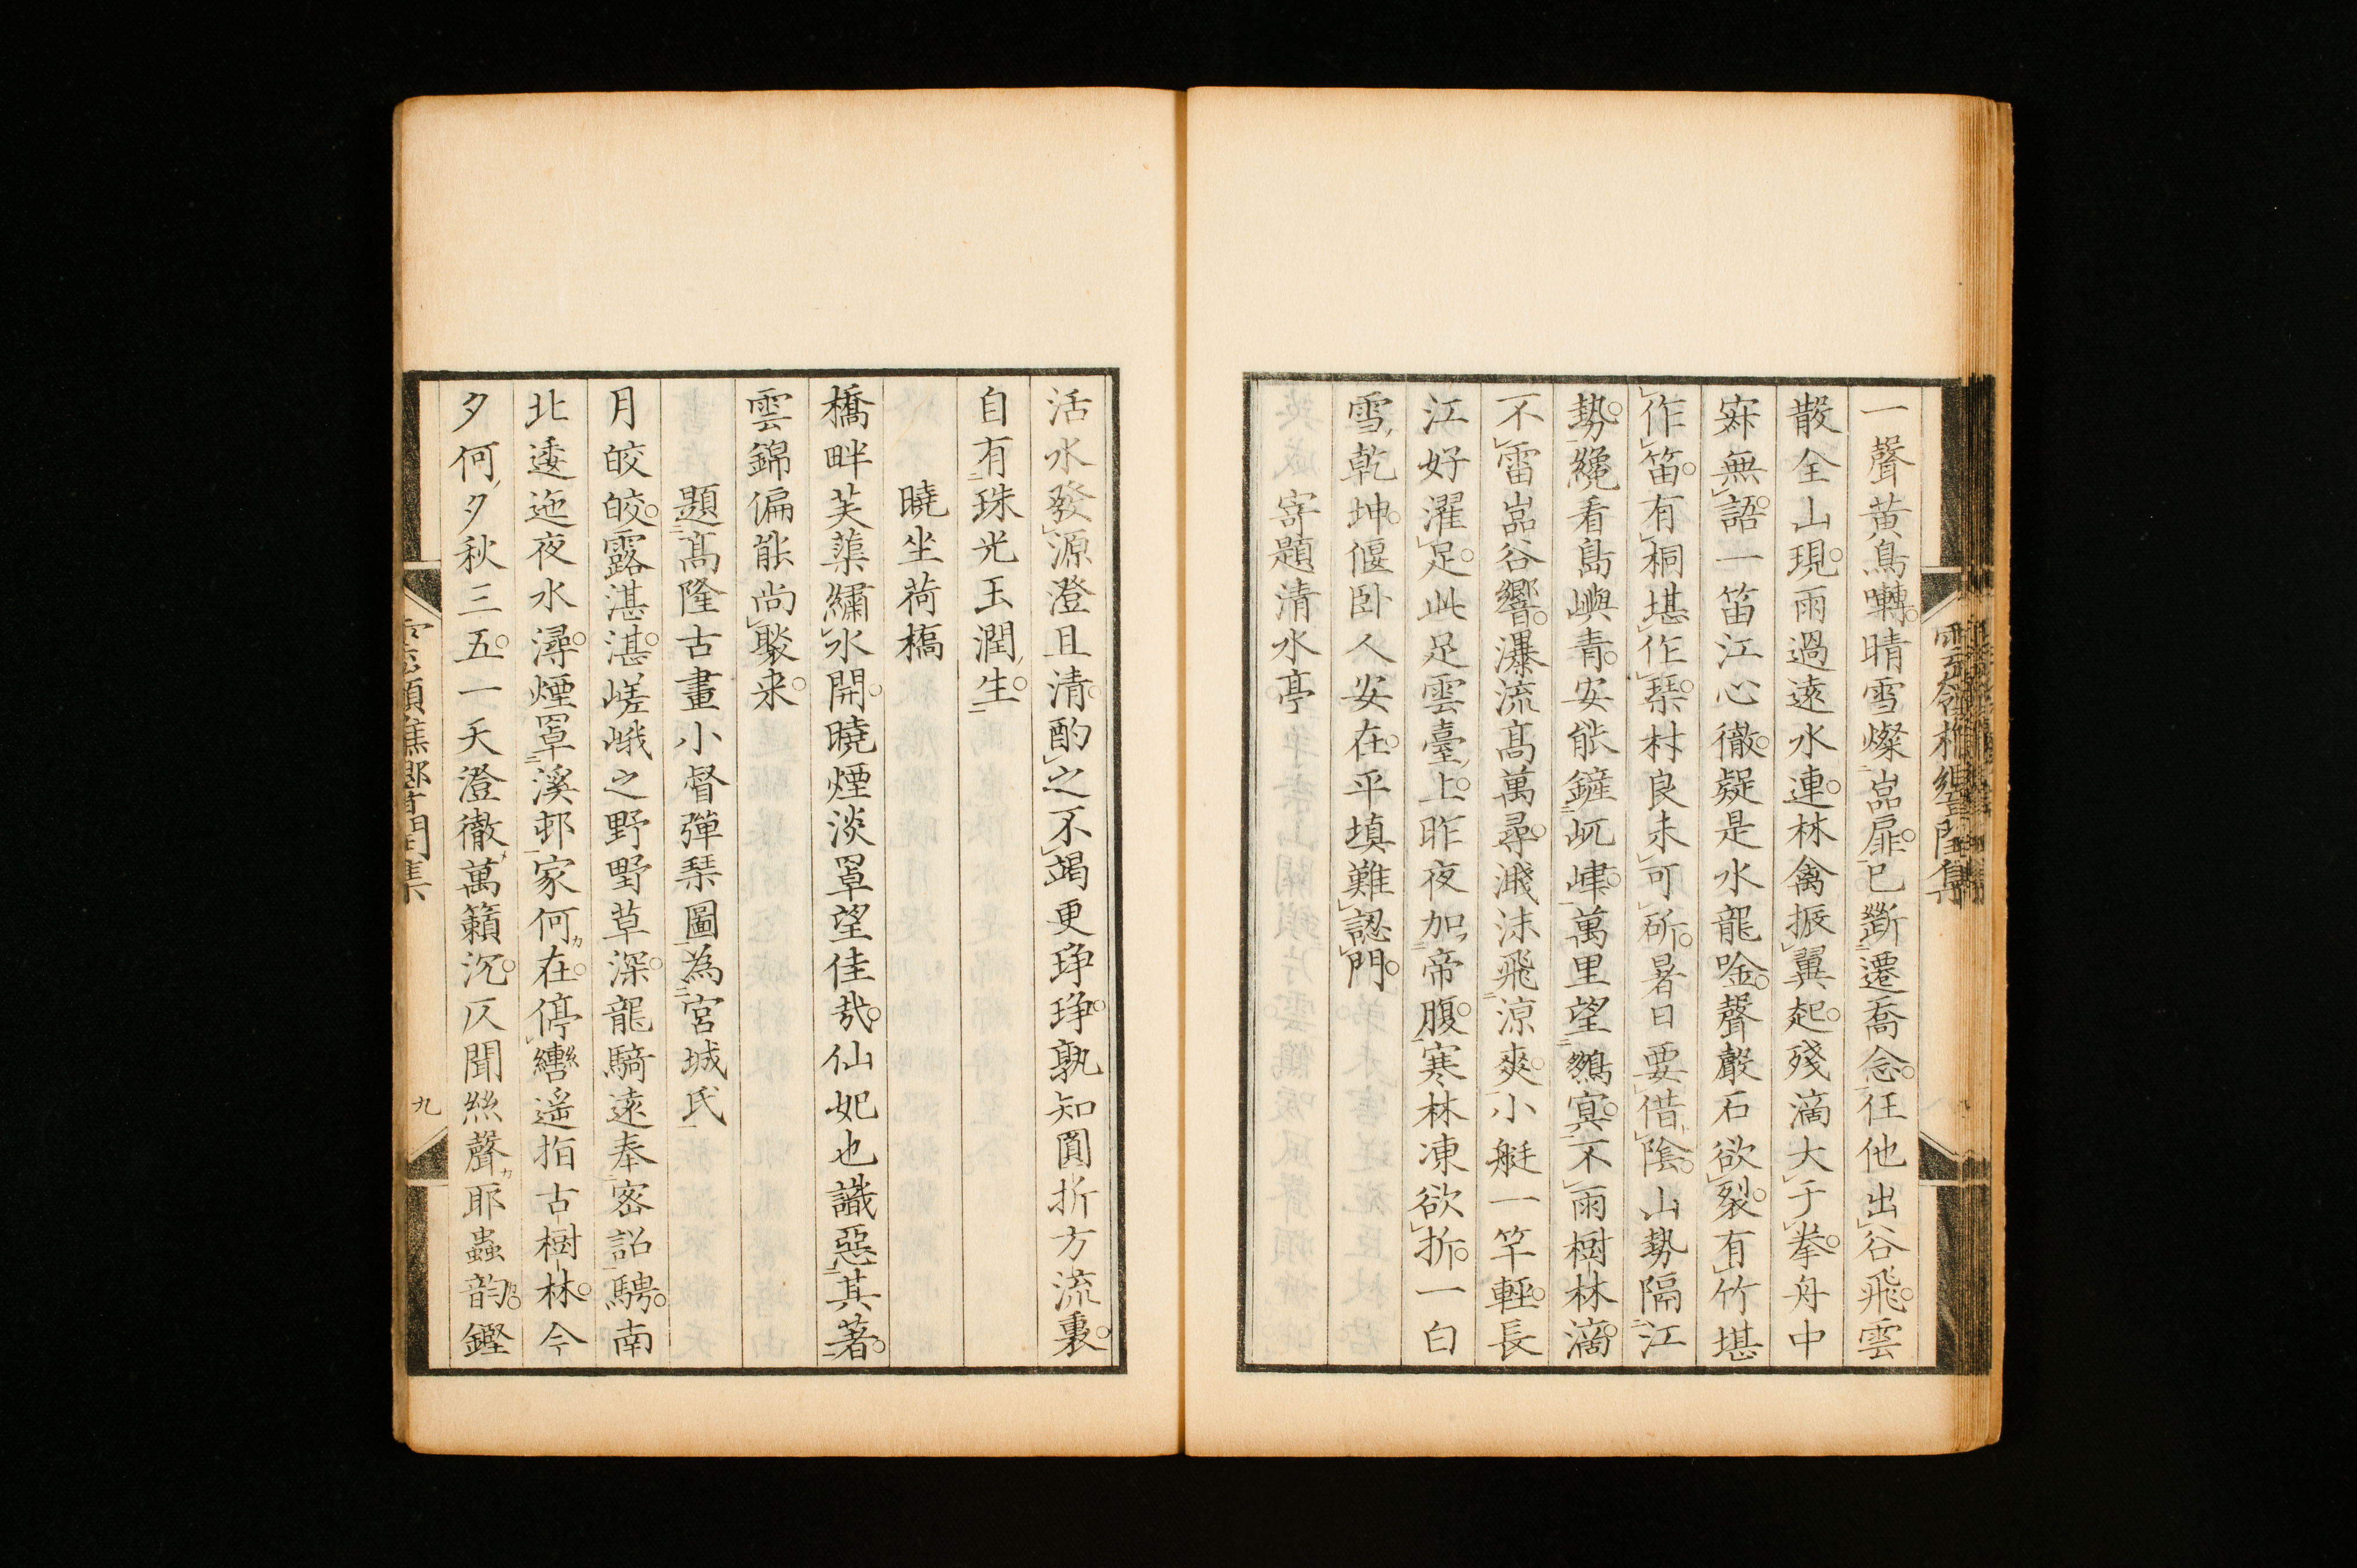 一聲黄鳥囀晴雪燦嵓扉已斷遷喬念任他出谷飛雲
散全山現雨過遠水連林禽振翼起殘滴大于拳舟中
寂無語一笛江心徹疑是水龍唫聲嚴石欲裂有竹堪
作笛有桐堪作琹村良未可斫暑日要借陰山勢隔江
勢纔看島嶼青安能鏟屼嵂萬里望鷄冥不雨樹林滴
不雷嵓谷響瀑流高萬尋濺沫飛涼爽小艇一竿輕長
江好濯足此足雲臺上昨夜加帝腹寒林凍欲折一白
雪乾坤偃卧人安在平塡難認門
寄題清水亭
活水發源澄且清酌之不竭更琤琤孰知圓折方流裏
自有珠光玉潤生
曉坐荷橋
橋畔芙蕖繡水開曉煙淡罩望佳哉仙妃也識惡其著
雲錦偏能尚聚来
題高隆古畫小督彈琹圖為宮城氏
月皎皎露湛湛嵯峨之野野草深龍騎遠奉密詔騁南
北逶迤夜水潯煙罩溪邨家何在停轡遥指古樹林今
夕何夕秋三五一天澄徹萬籟沉仄聞絲聲耶蟲韵鏗
九